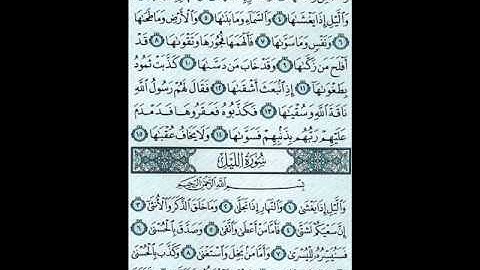 وَٱلَّيْلِ إِذَا يَغْشَىٰهَا ٤ وَٱلسَّمَآءِ وَمَا بَنَىٰهَا ٥ وَٱلْأَرْضِ وَمَا طَحَىٰهَا
٦ وَنَفْسٍ وَمَا سَوَّىٰهَا ٧ فَأَلْهَمَهَا فُجُورَهَا وَتَقْوَىٰهَا ٨ قَدْ
أَفْلَحَ مَن زَكَّىٰهَا ٩ وَقَدْ خَابَ مَن دَسَّىٰهَا ١٠ كَذَّبَتْ ثَمُودُ
بِطَغْوَىٰهَآ ١١ إِذِ ٱنۢبَعَثَ أَشْقَىٰهَا ١٢ فَقَالَ لَهُمْ رَسُولُ ٱللَّهِ
نَاقَةَ ٱللَّهِ وَسُقْيَىٰهَا ١٣ فَكَذَّبُوهُ فَعَقَرُوهَا فَدَمْدَمَ
عَلَيْهِمْ رَبُّهُم بِذَنۢبِهِمْ فَسَوَّىٰهَا ١٤ وَلَا يَخَافُ عُقْبَىٰهَا ١٥
سُورَةُ اللَّيْلِ
بِسْمِ ٱللَّهِ ٱلرَّحْمَٰنِ ٱلرَّحِيمِ
وَٱلَّيْلِ إِذَا يَغْشَىٰ ١ وَٱلنَّهَارِ إِذَا تَجَلَّىٰ ٢ وَمَا خَلَقَ ٱلذَّكَرَ وَٱلْأُنثَىٰٓ ٣
إِنَّ سَعْيَكُمْ لَشَتَّىٰ ٤ فَأَمَّا مَنْ أَعْطَىٰ وَٱتَّقَىٰ ٥ وَصَدَّقَ بِٱلْحُسْنَىٰ ٦
فَسَنُيَسِّرُهُۥ لِلْيُسْرَىٰ ٧ وَأَمَّا مَنۢ بَخِلَ وَٱسْتَغْنَىٰ ٨ وَكَذَّبَ بِٱلْحُسْنَىٰ